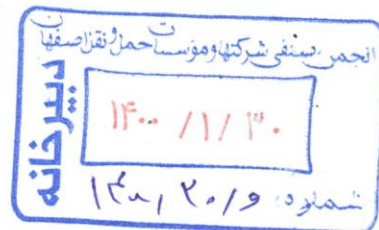 انجمن صنفی شرکتها و مؤسسات حمل و نقل اصفهان
دبیرخانه
۱۴۰۰/۱/۳۰
شماره: